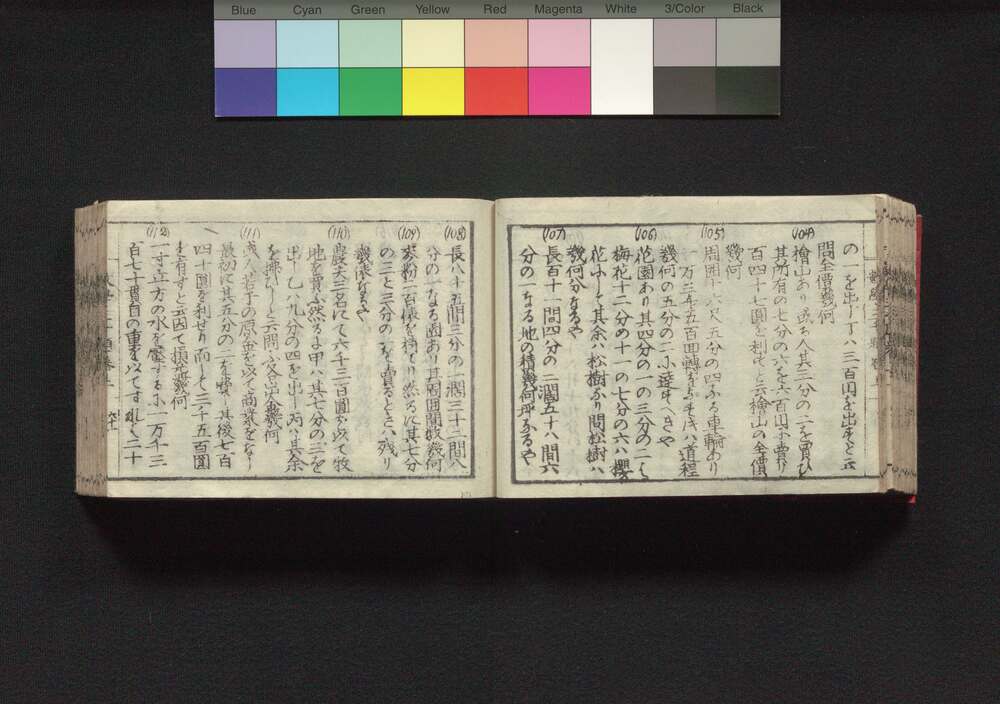 Blue Cyan Green Yellow Red Magenta White 3/Color Black
の一を出し丁ハ三百円を出すと云
問全價幾何
(104)
檜山あり或ル人其三分の二を買ひ
其所有の七分の六を六百円に賣り
百四十七圓を利せりと云檜山の全價
幾何
(105)
周囲十六尺五分の四なる車輪あり
一万三千五百回轉すれば道程
幾何の五分の二に達すべきや
(106)
花園あり其四分の一の三分の二ハ
梅花十二分の十一の七分の六ハ櫻
花にして其余ハ松樹なり問松樹ハ
幾何分なるや
(107)
長百十一間四分の二濶五十八間六
分の一なる地の積幾何坪なるや
(108)
長八十五間三分の一濶三十二間八
分の一なる園あり其周囲間数幾何
(109)
麥粉一百俵を持てり然るに其七分
の二と三分の一を賣るときハ残り
幾俵なるや
(110)
農夫三名にて六千三百圓を以て牧
地を買ふ然るに甲ハ其七分の三を
出し乙ハ九分の四を出し丙ハ其余
を拂ひしと云問ふ各出金幾何
(111)
或人若干の原金を以て商業をなし
最初に其五分の二を費し其後七百
四十圓を利せり而して三千五百圓
を有すと云因て損金幾何
(112)
一寸立方の水を盡するに一万千三
百七十貫目の重を以てすれハ二十